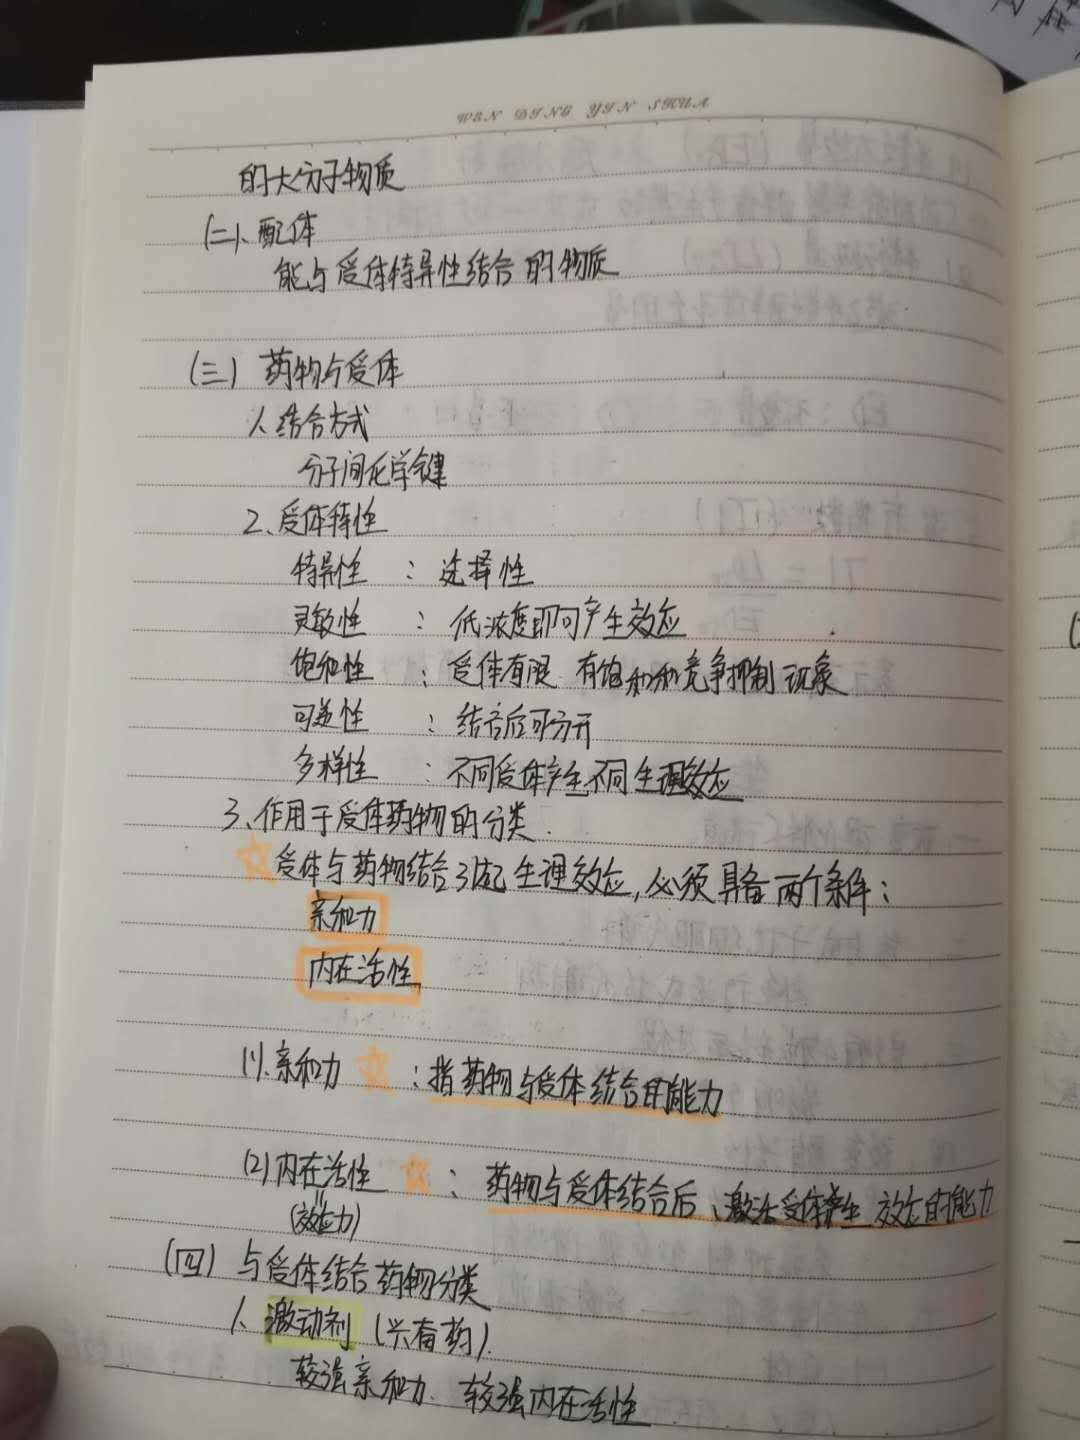 WEN DING YIN SHUA
的大分子物质
(二)、配体
能与受体特异性结合的物质
(三) 药物与受体
1、结合方式
分子间化学键
2、受体特性
特异性 : 选择性
灵敏性 : 低浓度即可产生效应
饱和性 : 受体有限 有饱和和竞争抑制现象
可逆性 : 结合后可分开
多样性 : 不同受体产生不同生理效应
3、作用于受体药物的分类.
☆受体与药物结合引起生理效应,必须具备两个条件:
亲和力
内在活性
(1)、亲和力 ☆ : 指药物与受体结合的能力
(2)内在活性 ☆ : 药物与受体结合后、激活受体产生效应的能力
(效应力)
(四) 与受体结合药物分类
1、激动剂 (兴奋药).
较强亲和力 较强内在活性